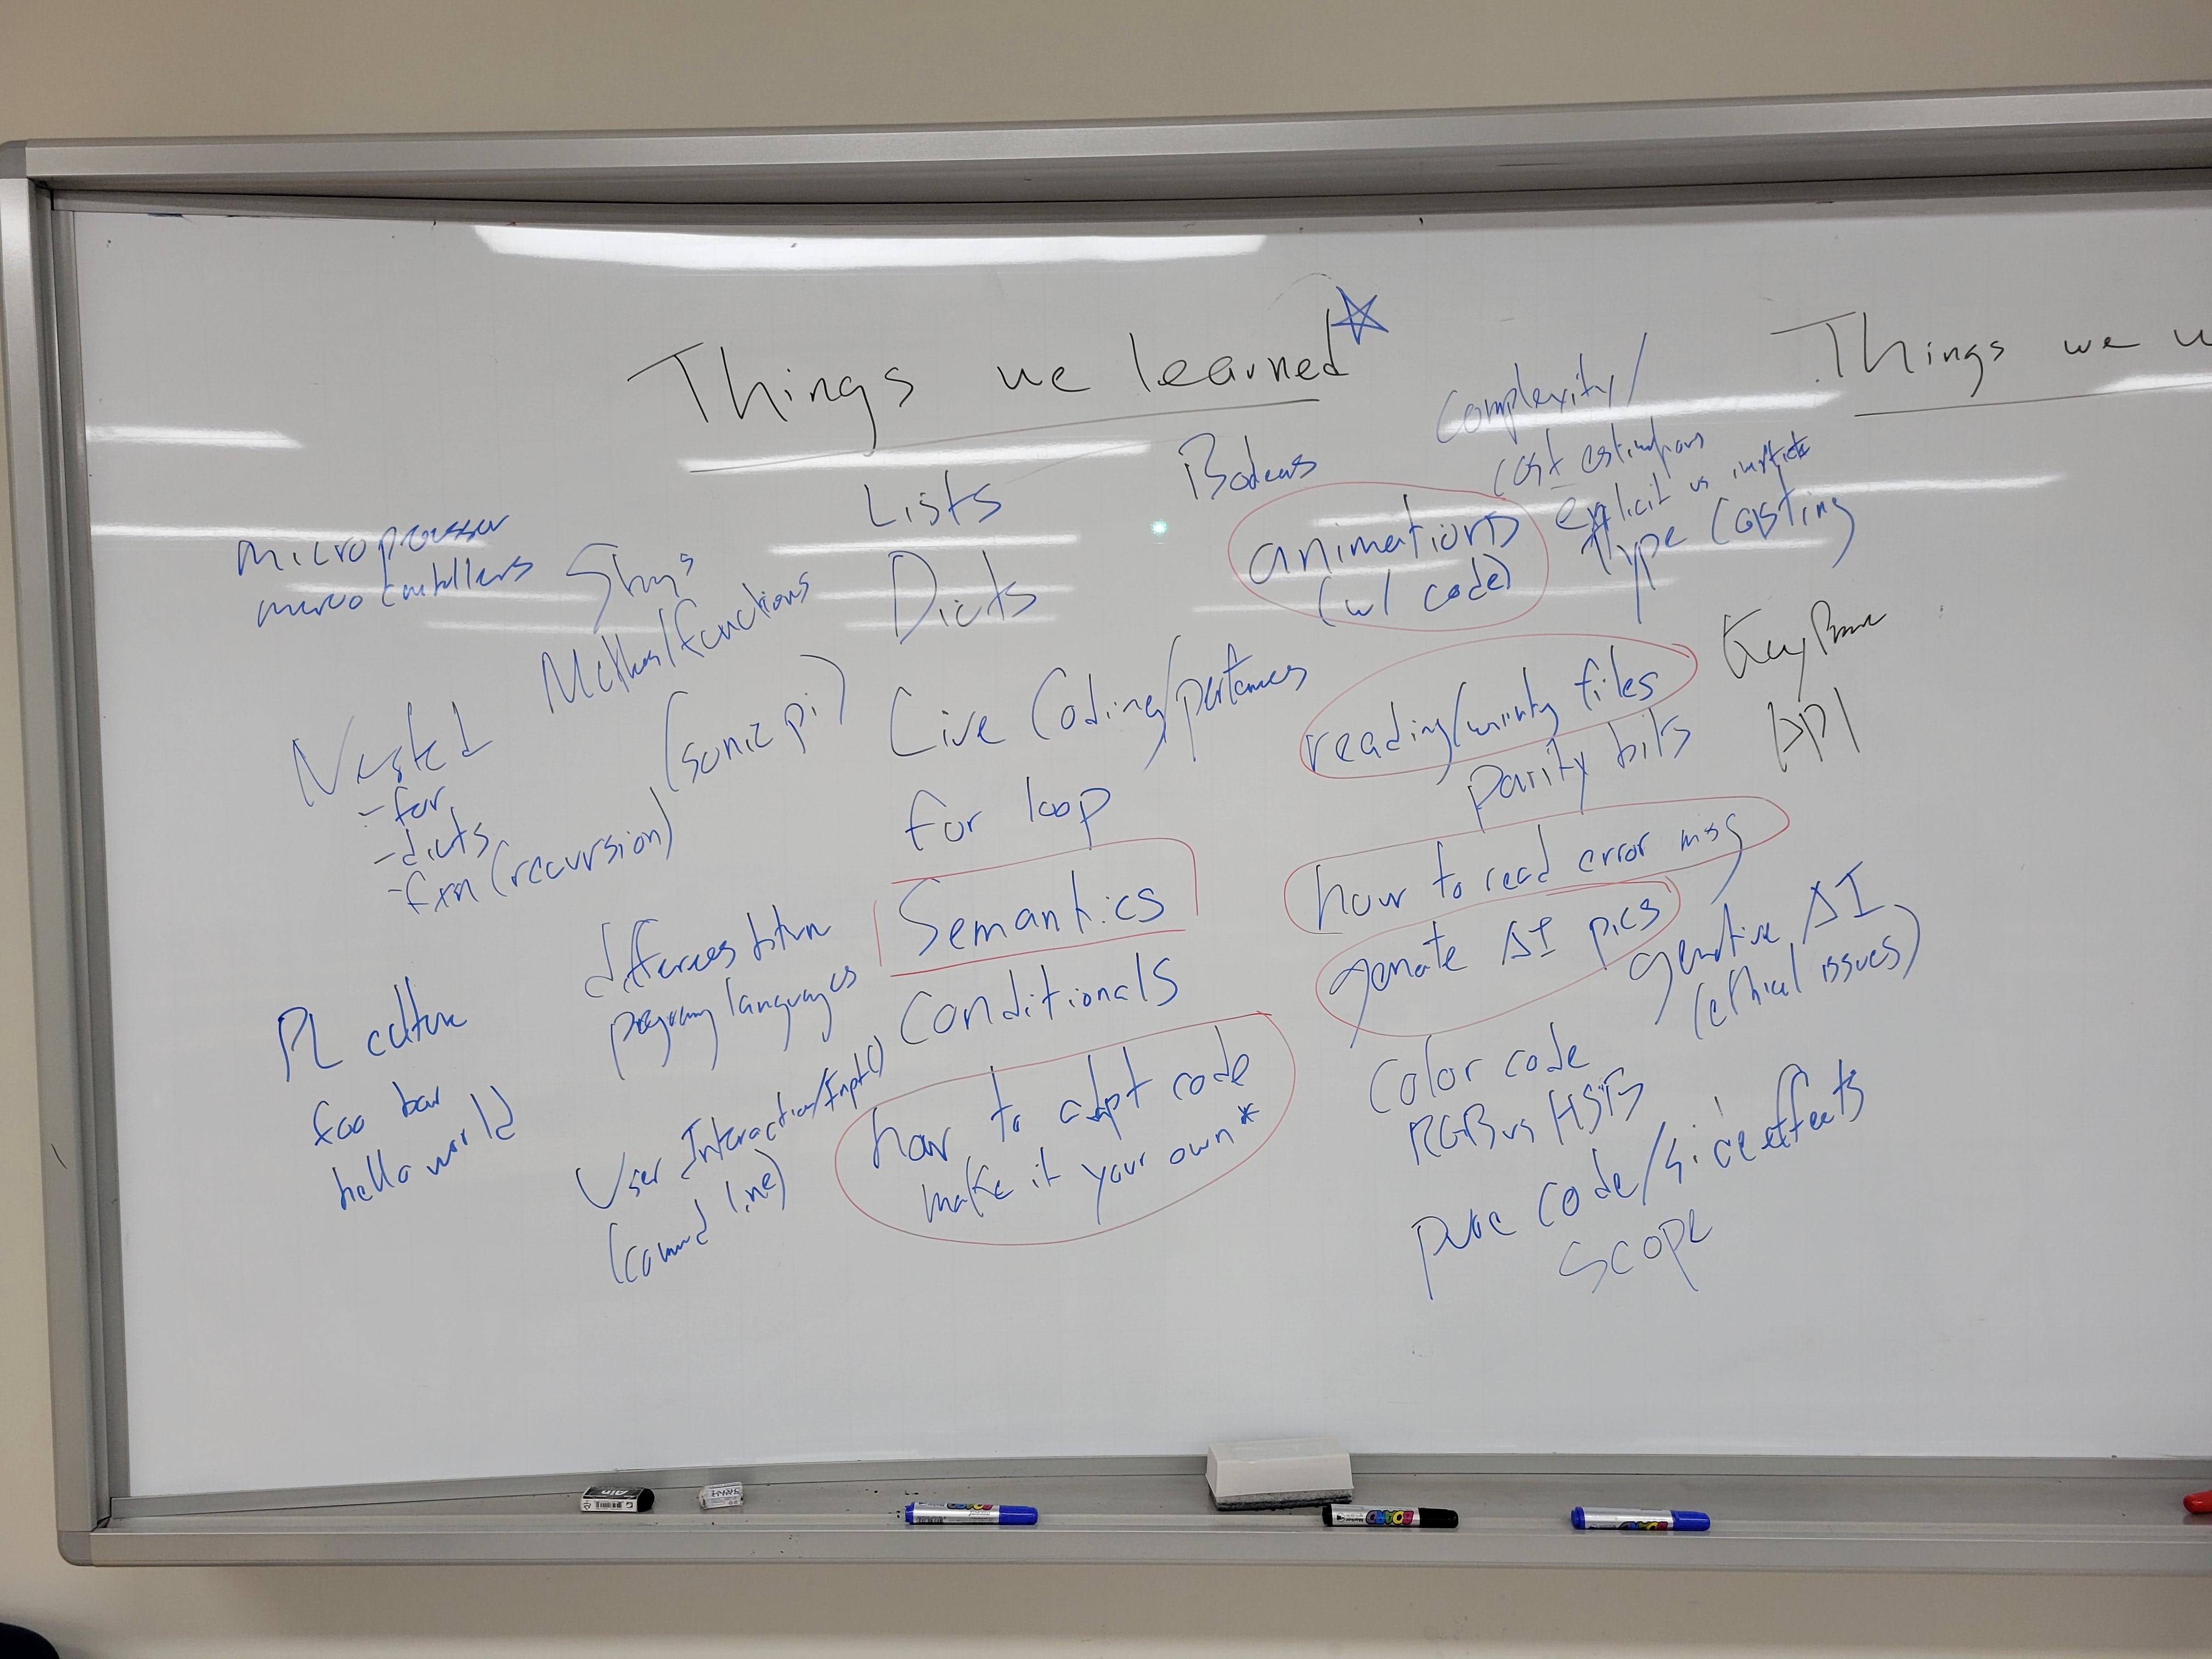 Things we learned
Things we
Lists
Dicts
Live Coding/
(sonic pi)
for loop
Semantics
conditionals
how to adpt code
make it your own*
Booleans
animations
(w/ code)
Complexity/
cost estimations
explicit vs implicit
type casting
reading/writing files
parity bits
how to read error msg
AI pics
AI
(ethical issues)
Color code
RGB vs
pure code/side effects
scope
API
micro
micro
Strings
/functions
Nested
- for
- dicts
- fxn (recursion)
languages
User Interaction/Input()
line)
PL culture
foo bar
hello world
BOARD
BOARD
BOARD